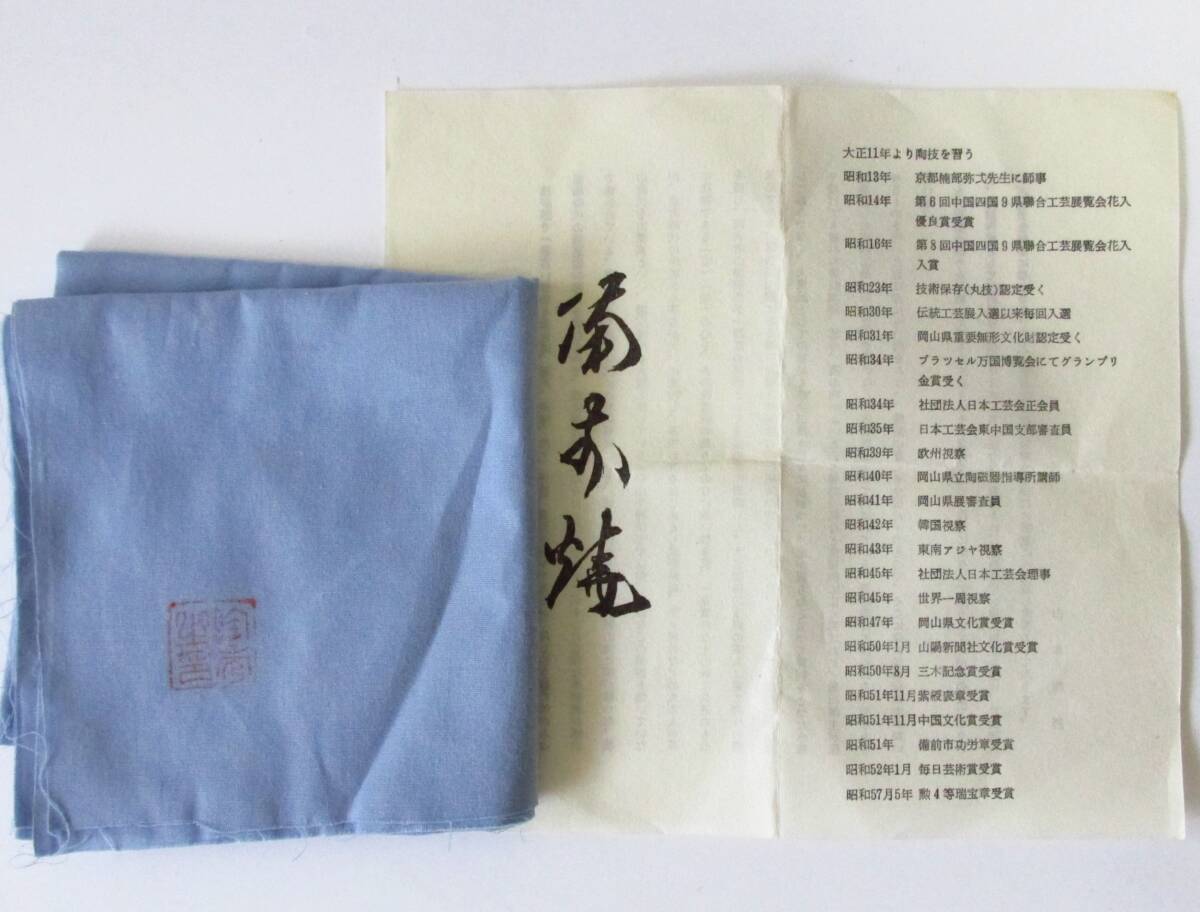 備前焼
大正11年より陶技を習う
昭和13年 京都楠部弥弌先生に師事
昭和14年 第6回中国四国9県聯合工芸展覧会花入
優良賞受賞
昭和16年 第8回中国四国9県聯合工芸展覧会花入
入賞
昭和23年 技術保存(丸技)認定受く
昭和30年 伝統工芸展入選以来毎回入選
昭和31年 岡山県重要無形文化財認定受く
昭和34年 ブラツセル万国博覧会にてグランプリ
金賞受く
昭和34年 社団法人日本工芸会正会員
昭和35年 日本工芸会東中国支部審査員
昭和39年 欧州視察
昭和40年 岡山県立陶磁器指導所講師
昭和41年 岡山県展審査員
昭和42年 韓国視察
昭和43年 東南アジヤ視察
昭和45年 社団法人日本工芸会理事
昭和45年 世界一周視察
昭和47年 岡山県文化賞受賞
昭和50年1月 山陽新聞社文化賞受賞
昭和50年8月 三木記念賞受賞
昭和51年11月 紫綬褒章受賞
昭和51年11月 中国文化賞受賞
昭和51年 備前市功労章受賞
昭和52年1月 毎日芸術賞受賞
昭和57月5年 勲4等瑞宝章受賞